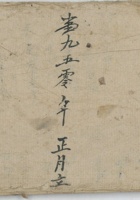 九五零年正月立